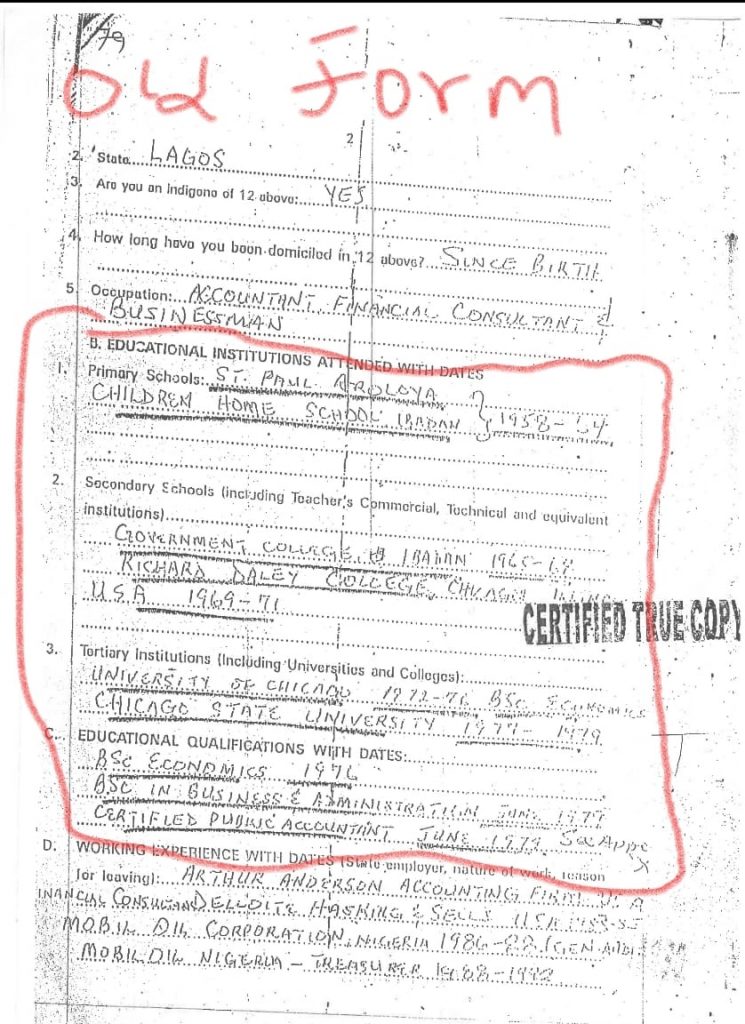 79
OLD FORM
2
2. State: LAGOS
3. Are you an indigene of 12 above: YES
4. How long have you been domiciled in 12 above? SINCE BIRTH
5. Occupation: ACCOUNTANT, FINANCIAL CONSULTANT &
BUSINESSMAN
B. EDUCATIONAL INSTITUTIONS ATTENDED WITH DATES
1. Primary Schools: ST. PAUL AROLOYA
CHILDREN HOME SCHOOL, IBADAN } 1958-64
2. Secondary Schools (including Teacher's Commercial, Technical and equivalent
institutions)
GOVERNMENT COLLEGE, IBADAN 1965-68
RICHARD DALEY COLLEGE, CHICAGO
U.S.A 1969-71
CERTIFIED TRUE COPY
3. Tertiary Institutions (Including Universities and Colleges):
UNIVERSITY OF CHICAGO 1972-76 BSC ECONOMICS
CHICAGO STATE UNIVERSITY 1977-1979
C. EDUCATIONAL QUALIFICATIONS WITH DATES:
BSC ECONOMICS 1976
BSC IN BUSINESS & ADMINISTRATION JUNE 1979
CERTIFIED PUBLIC ACCOUNTANT JUNE 1979 See Appe
D. WORKING EXPERIENCE WITH DATES (State employer, nature of work, reason
for leaving): ARTHUR ANDERSON ACCOUNTING FIRM
INANCIAL CONSULTAN DELLOITE HASKING & SELLS USA
MOBIL OIL CORPORATION, NIGERIA 1986-88
MOBIL OIL NIGERIA - TREASURER 1988-1992